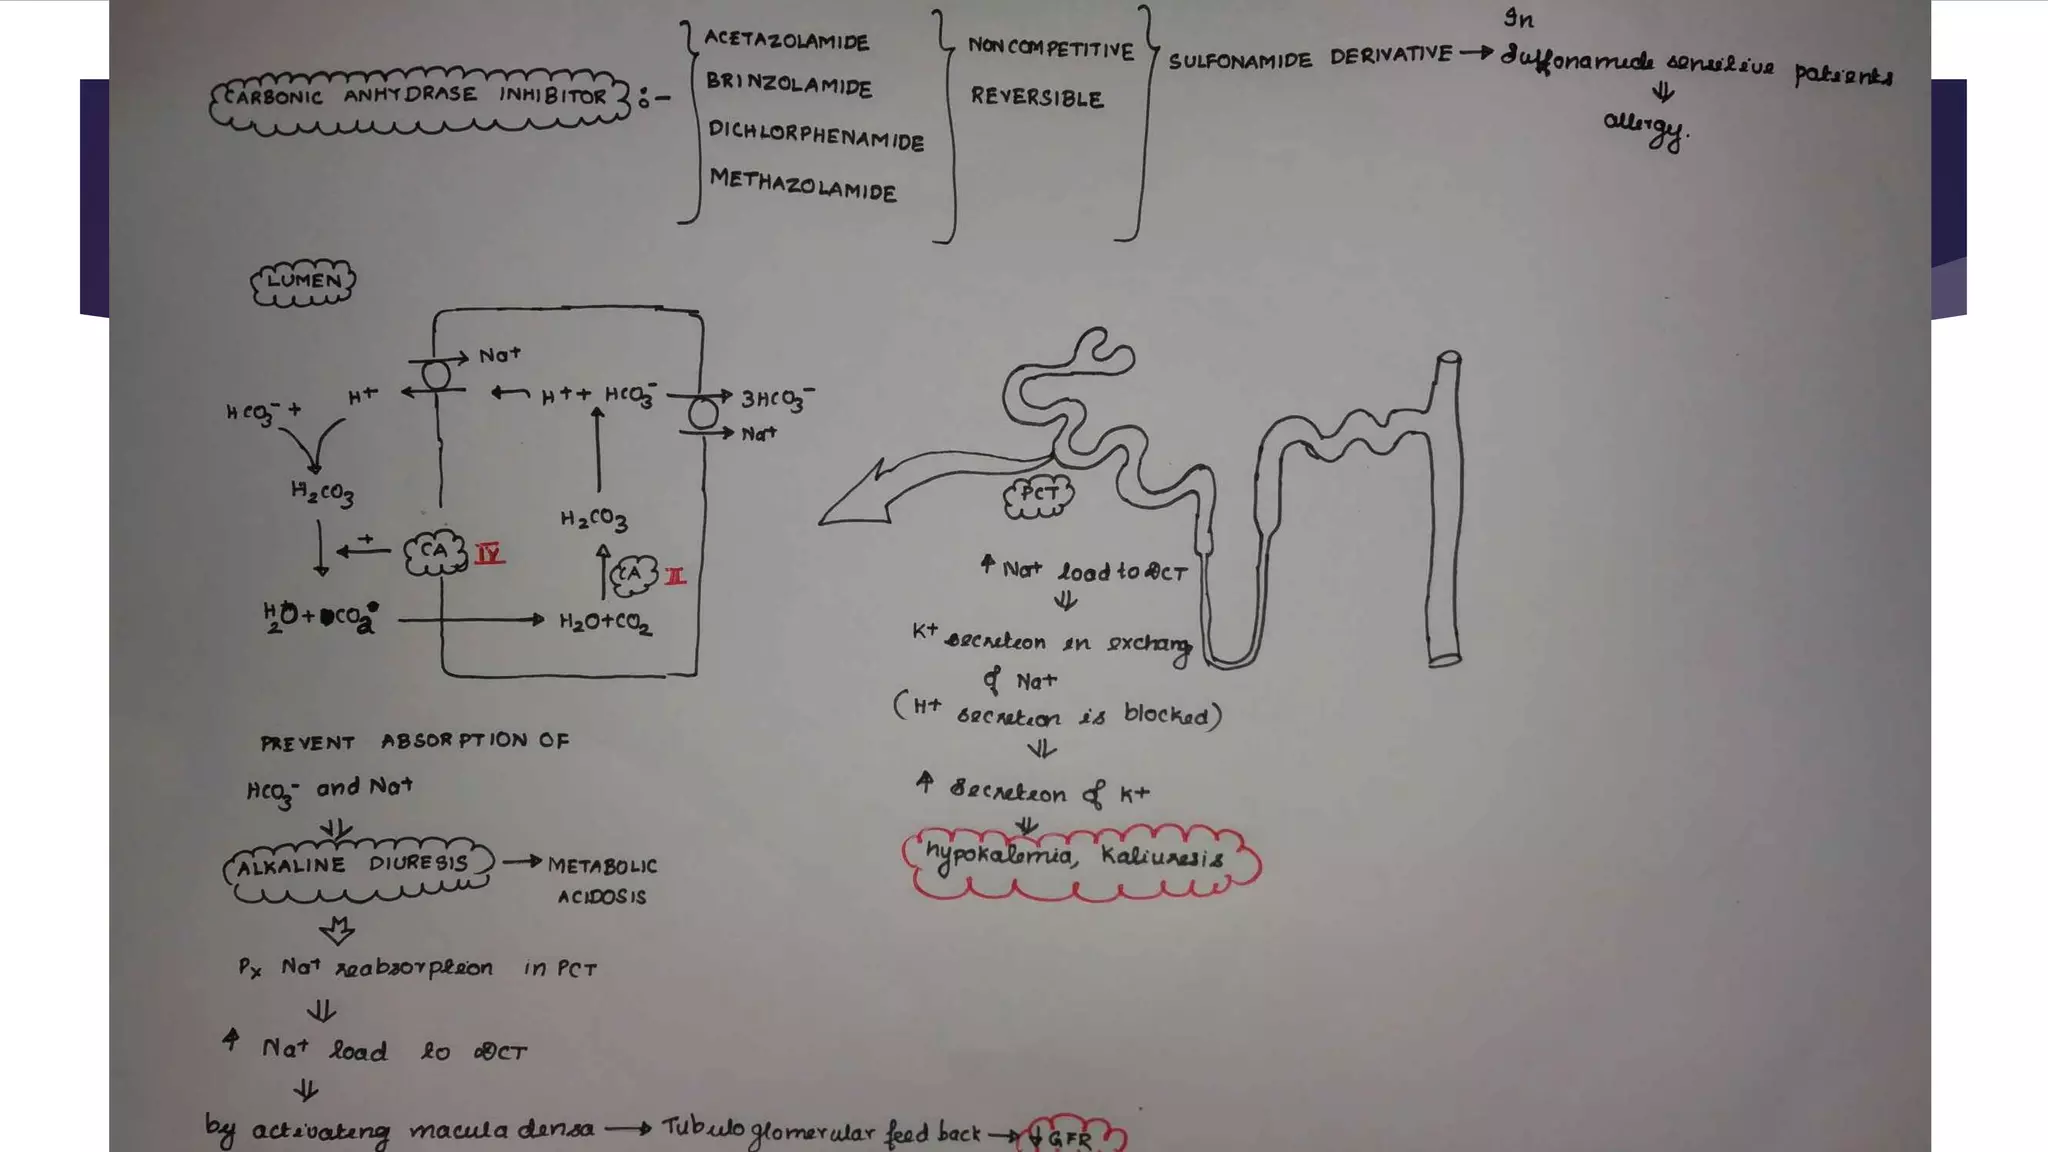 CARBONIC ANHYDRASE INHIBITOR :-
ACETAZOLAMIDE
BRINZOLAMIDE
DICHLORPHENAMIDE
METHAZOLAMIDE
NONCOMPETITIVE
REVERSIBLE
SULFONAMIDE DERIVATIVE → In
Sulfonamide sensitive patients
⇓
allergy.
LUMEN
Na+
HCO3- + H+ ← H+ + HCO3- → 3HCO3-
Na+
H2CO3
H2CO3
+
CA IV
CA II
H2O + CO2 → H2O+CO2
PREVENT ABSORPTION OF
HCO3- and Na+
⇓
ALKALINE DIURESIS → METABOLIC
ACIDOSIS
⇓
Px Na+ reabsorption in PCT
⇓
↑ Na+ load to DCT
⇓
by activating macula densa → Tubuloglomerular feed back → ↓ GFR
PCT
↑ Na+ load to DCT
⇓
K+ secretion in exchang
of Na+
(H+ secretion is blocked)
⇓
↑ secretion of K+
⇓
hypokalemia, Kaliuresis